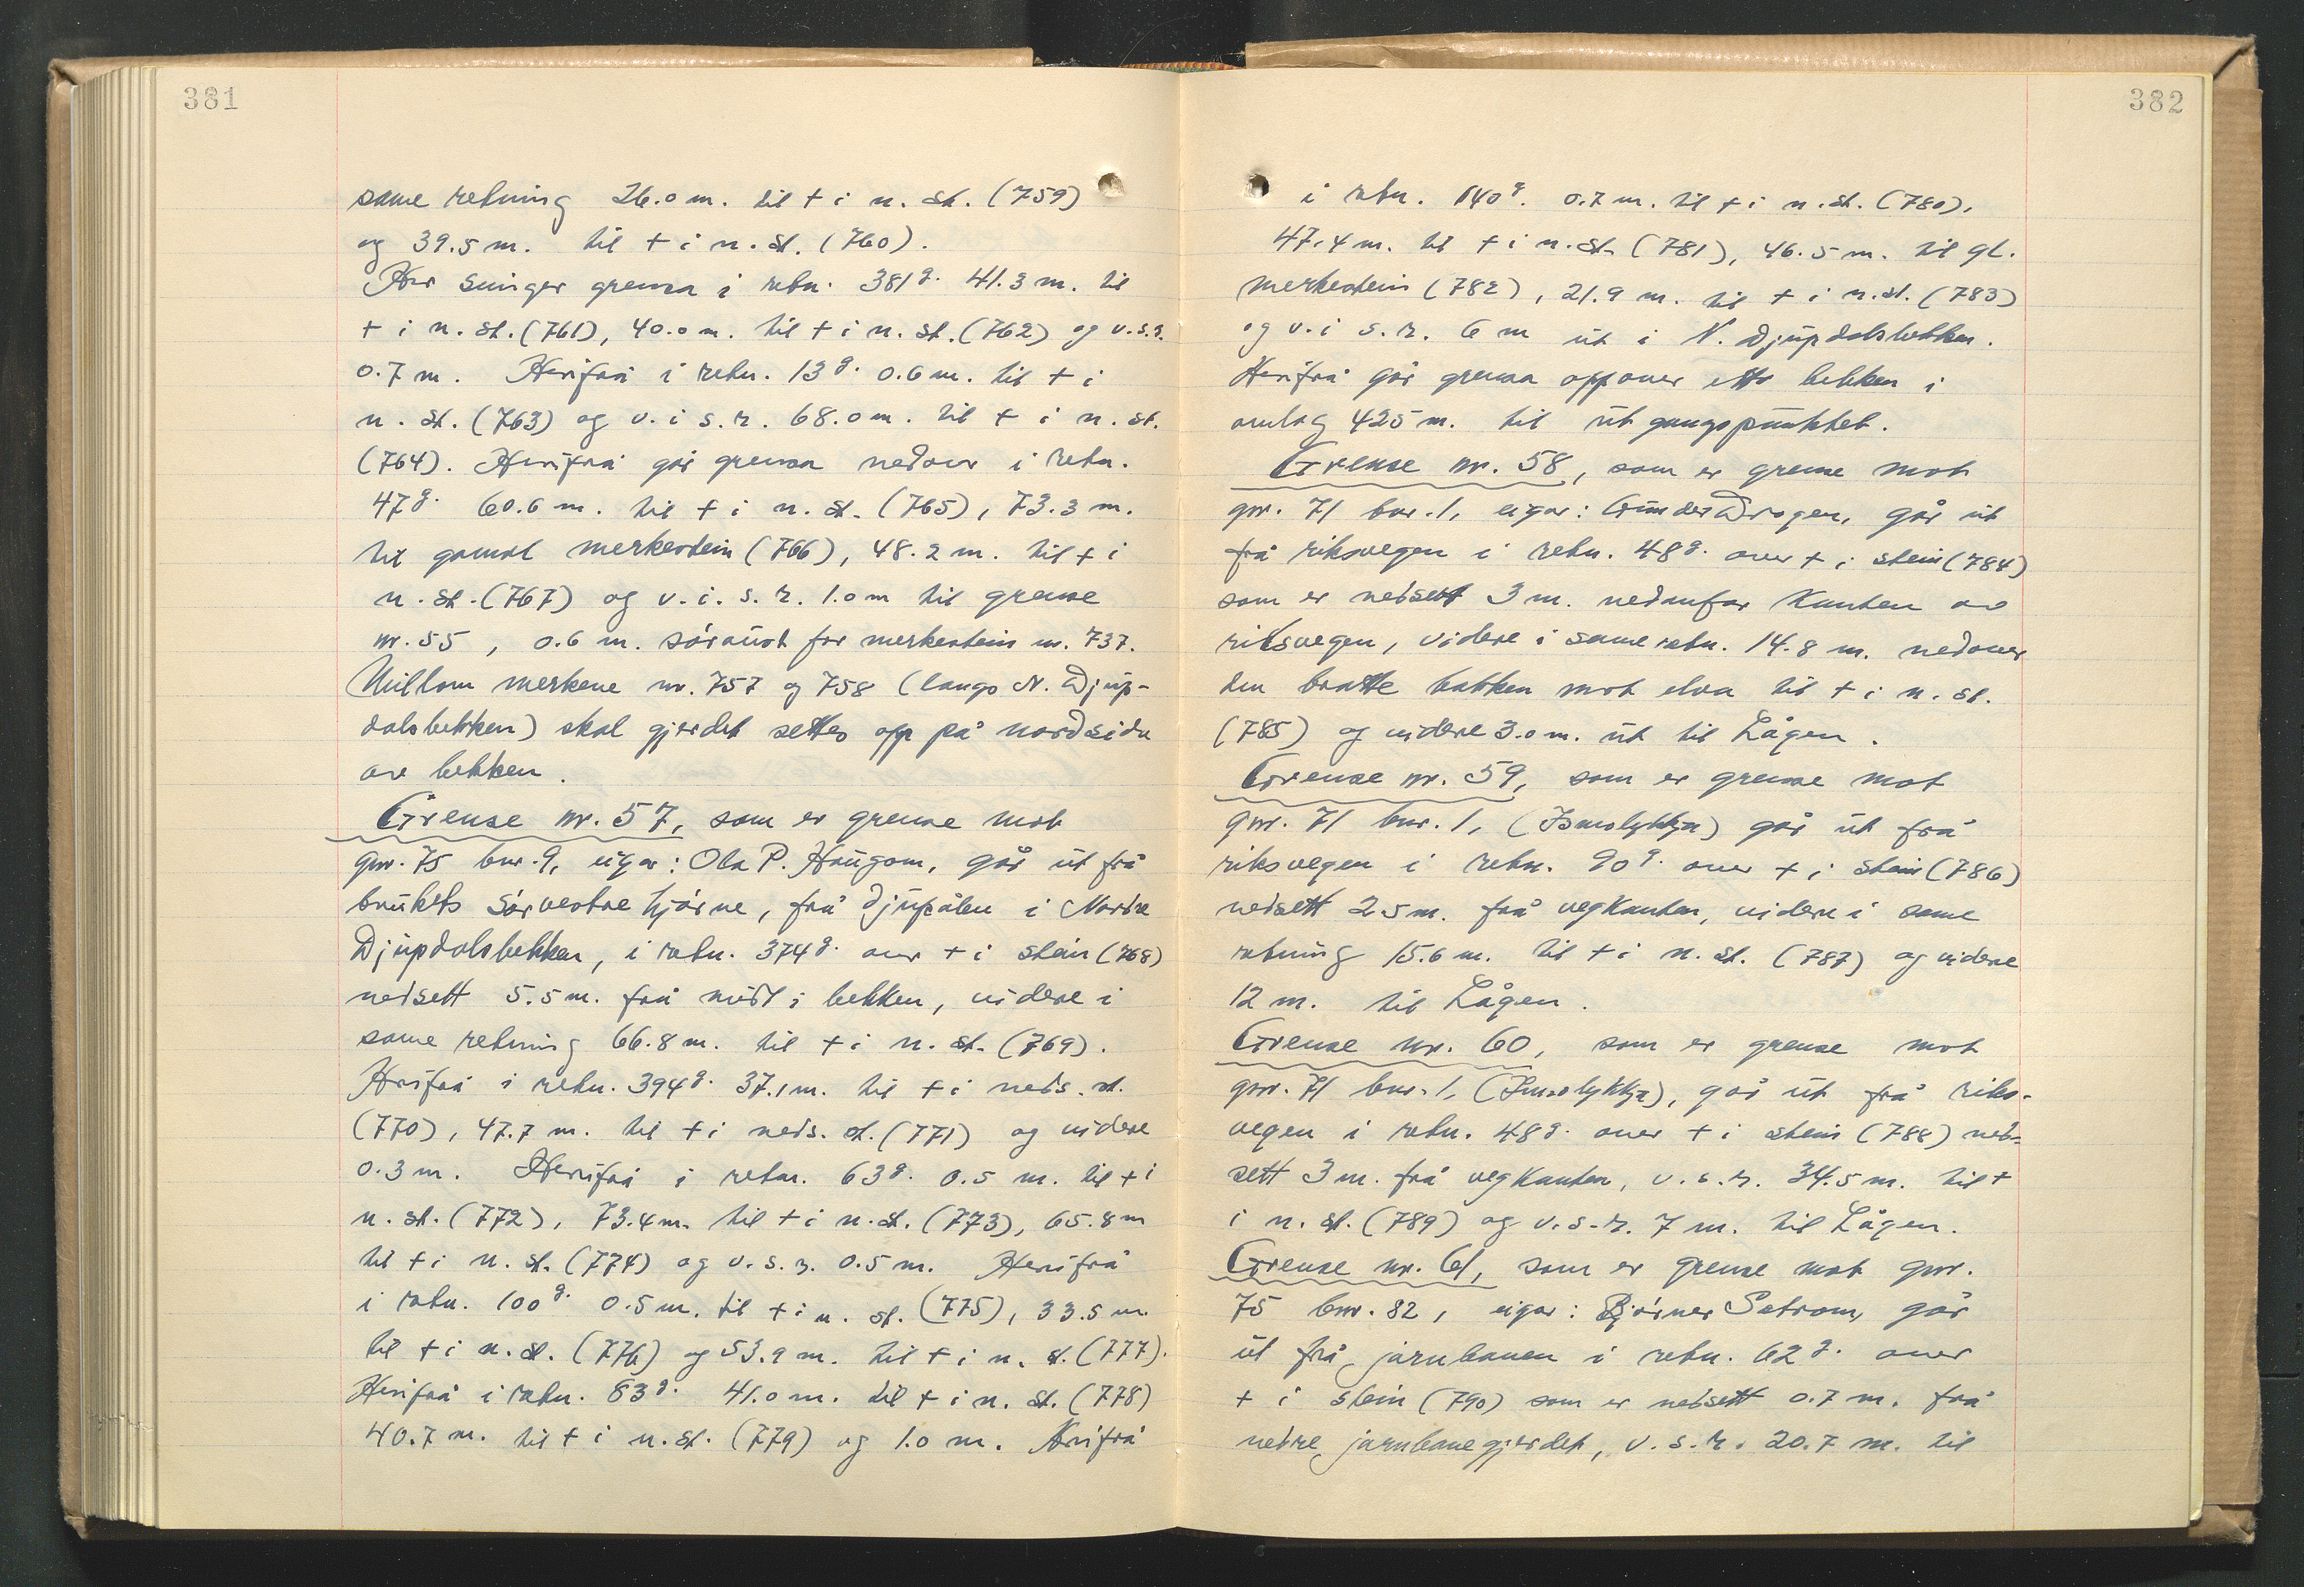 381
same retning 26.0 m. til + i n. st. (759)
og 39.5 m. til + i n. st. (760).
Her svinger grensa i retn. 381g. 41.3 m. til
+ i n. st. (761), 40.0 m. til + i n. st. (762) og v.s.r.
0.7 m. Herifrå i retn. 13g. 0.6 m. til + i
n. st. (763) og v. i s. r. 68.0 m. til + i n. st.
(764). Herifrå går grensa nedover i retn.
47g. 60.6 m. til + i n. st. (765), 73.3 m.
til gamal merkestein (766), 48.2 m. til + i
n. st. (767) og v. i. s. r. 1.0 m til grense
nr. 55, 0.6 m. søraust for merkestein nr. 737.
Millom merkene nr. 757 og 758 (langs N. Djup-
dalsbekken) skal gjerdet settes opp på nordsida
av bekken.
Grense nr. 57, som er grense mot
gnr. 75 bnr. 9, eigar: Ola P. Haugom, går ut frå
brukets sørvestre hjørne, frå djupålen i Nordre
Djupdalsbekken, i retn. 374g. over + i stein (768)
nedsett 5.5 m. frå midt i bekken, videre i
same retning 66.8 m. til + i n. st. (769).
Herifrå i retn. 394g. 37.1 m. til + i neds. st.
(770), 47.7 m. til + i neds. st. (771) og videre
0.3 m. Herifrå i retn. 63g. 0.5 m. til + i
n. st. (772), 73.4 m. til + i n. st. (773), 65.8 m
til + i n. st. (774) og v. s. r. 0.5 m. Herifrå
i retn. 100g. 0.5 m. til + i n. st. (775), 33.5 m.
til + i n. st. (776) og 53.9 m. til + i n. st. (777).
Herifrå i retn. 83g. 41.0 m. til + i n. st. (778)
40.7 m. til + i n. st. (779) og 1.0 m. Herifrå
382
i retn. 140g. 0.7 m. til + i n. st. (780),
47.4 m. til + i n. st. (781), 46.5 m. til gl.
merkestein (782), 21.9 m. til + i n. st. (783)
og v. i s. r. 6 m ut i N. Djupdalsbekken.
Herifrå går grensa oppover etter bekken i
omlag 425 m. til utgangspunktet.
Grense nr. 58, som er grense mot
gnr. 71 bnr. 1, eigar: Gunder Drogen, går ut
frå riksvegen i retn. 48g. over + i stein (784)
som er nedsett 3 m. nedanfor kanten av
riksvegen, videre i same retn. 14.8 m. nedover
den bratte bakken mot elva til + i n. st.
(785) og videre 3.0 m. ut til Lågen.
Grense nr. 59, som er grense mot
gnr. 71 bnr. 1, (Ismolykkja) går ut frå
riksvegen i retn. 90g. over + i stein (786)
nedsett 2.5 m. frå vegkanten, videre i same
retning 15.6 m. til + i n. st. (787) og videre
12 m. til Lågen.
Grense nr. 60, som er grense mot
gnr. 71 bnr. 1, (Ismolykkja), går ut frå riks-
vegen i retn. 48g. over + i stein (788) ned-
sett 3 m. frå vegkanten, v. s. r. 34.5 m. til +
i n. st. (789) og v. s. r. 7 m. til Lågen.
Grense nr. 61, som er grense mot gnr.
75 bnr. 82, eigar: Bjørner Satrom, går
ut frå jarnbanen i retn. 62g. over
+ i stein (790) som er nedsett 0.7 m. frå
nedre jarnbanegjerdet, v. s. r. 20.7 m. til